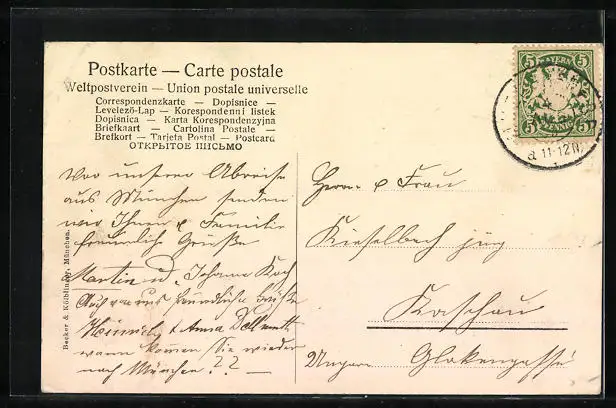 Postkarte — Carte postale
Weltpostverein — Union postale universelle
Correspondenzkarte – Dopisnice –
Levelező-Lap – Korespondenní lístek
Dopisnica – Karta Korespondenzyjna
Briefkaart – Cartolina Postale –
Brefkort – Tarjeta Postal – Postcard
ОТКРЫТОЕ ПИСЬМО
5 BAYERN 5
5 PFENNIG 5
11-12
Vor unserer Abreise
aus München senden
wir Ihnen & Familie
freundliche Grüße
Martin u. Johanna Koch
Auch von uns freundliche Grüße
Heinrich & Anna
wann kommen Sie wieder
nach München??
Herrn & Frau
Kieselbach jung
Kaschau
Ungarn
Becker & Kölblinger, München.